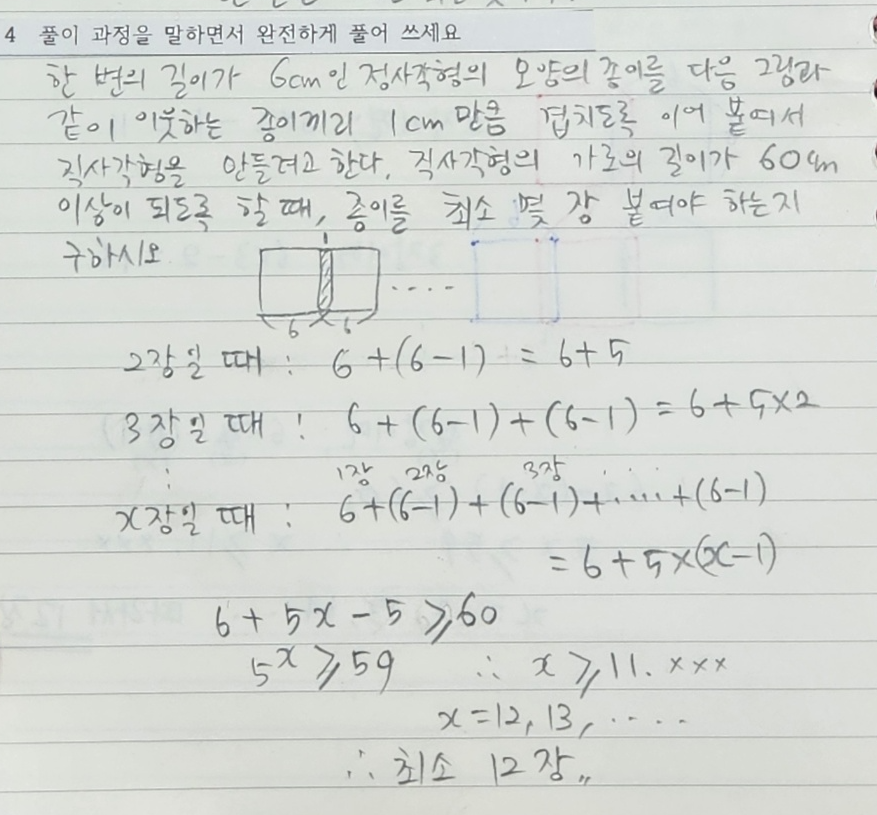 4 풀이 과정을 말하면서 완전하게 풀어 쓰세요
한 변의 길이가 6cm인 정사각형의 모양의 종이를 다음 그림과
같이 이웃하는 종이끼리 1cm 만큼 겹치도록 이어 붙여서
직사각형을 만들려고 한다. 직사각형의 가로의 길이가 60cm
이상이 되도록 할 때, 종이를 최소 몇 장 붙여야 하는지
구하시오
1
....
6 6
2장일 때 : 6+(6-1) = 6+5
3장일 때 : 6+(6-1)+(6-1) = 6+5×2
⋮
1장 2장 3장 ....
x장일 때 : 6+(6-1)+(6-1)+....+(6-1)
= 6+5×(x-1)
6+5x-5≥60
5x≥59 ∴ x≥11.×××
x=12, 13, ....
∴ 최소 12장〃